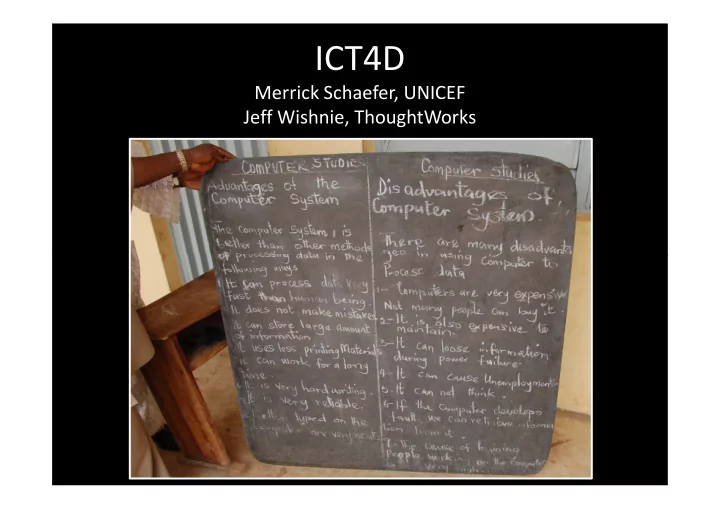 ICT4D
Merrick Schaefer, UNICEF
Jeff Wishnie, ThoughtWorks
COMPUTER STUDIES
Advantages of the
Computer System
The Computer System, is
better than other methods
of processing data in the
following ways
It can process data very
fast than human being.
It does not make mistakes
It can store large amount
of information.
It uses less printing Materials
It can work for a long
time.
It is very hard writing.
It is very reliable.
typed on the
Computer are very neat.
Computer studies
Disadvantages of
Computer System.
There are many disadvanta
ges in using Computer to
Process data
1- Computers are very expensive
Not many people can buy it.
2- It is also expensive to
maintain.
3- It can loose information
during power failure.
4- It can cause Unemployment
5- It can not think.
6- If the Computer develops
fault, we can retrieve informa
tion from it.
7- the cause of training
People on the Computer
is very high.